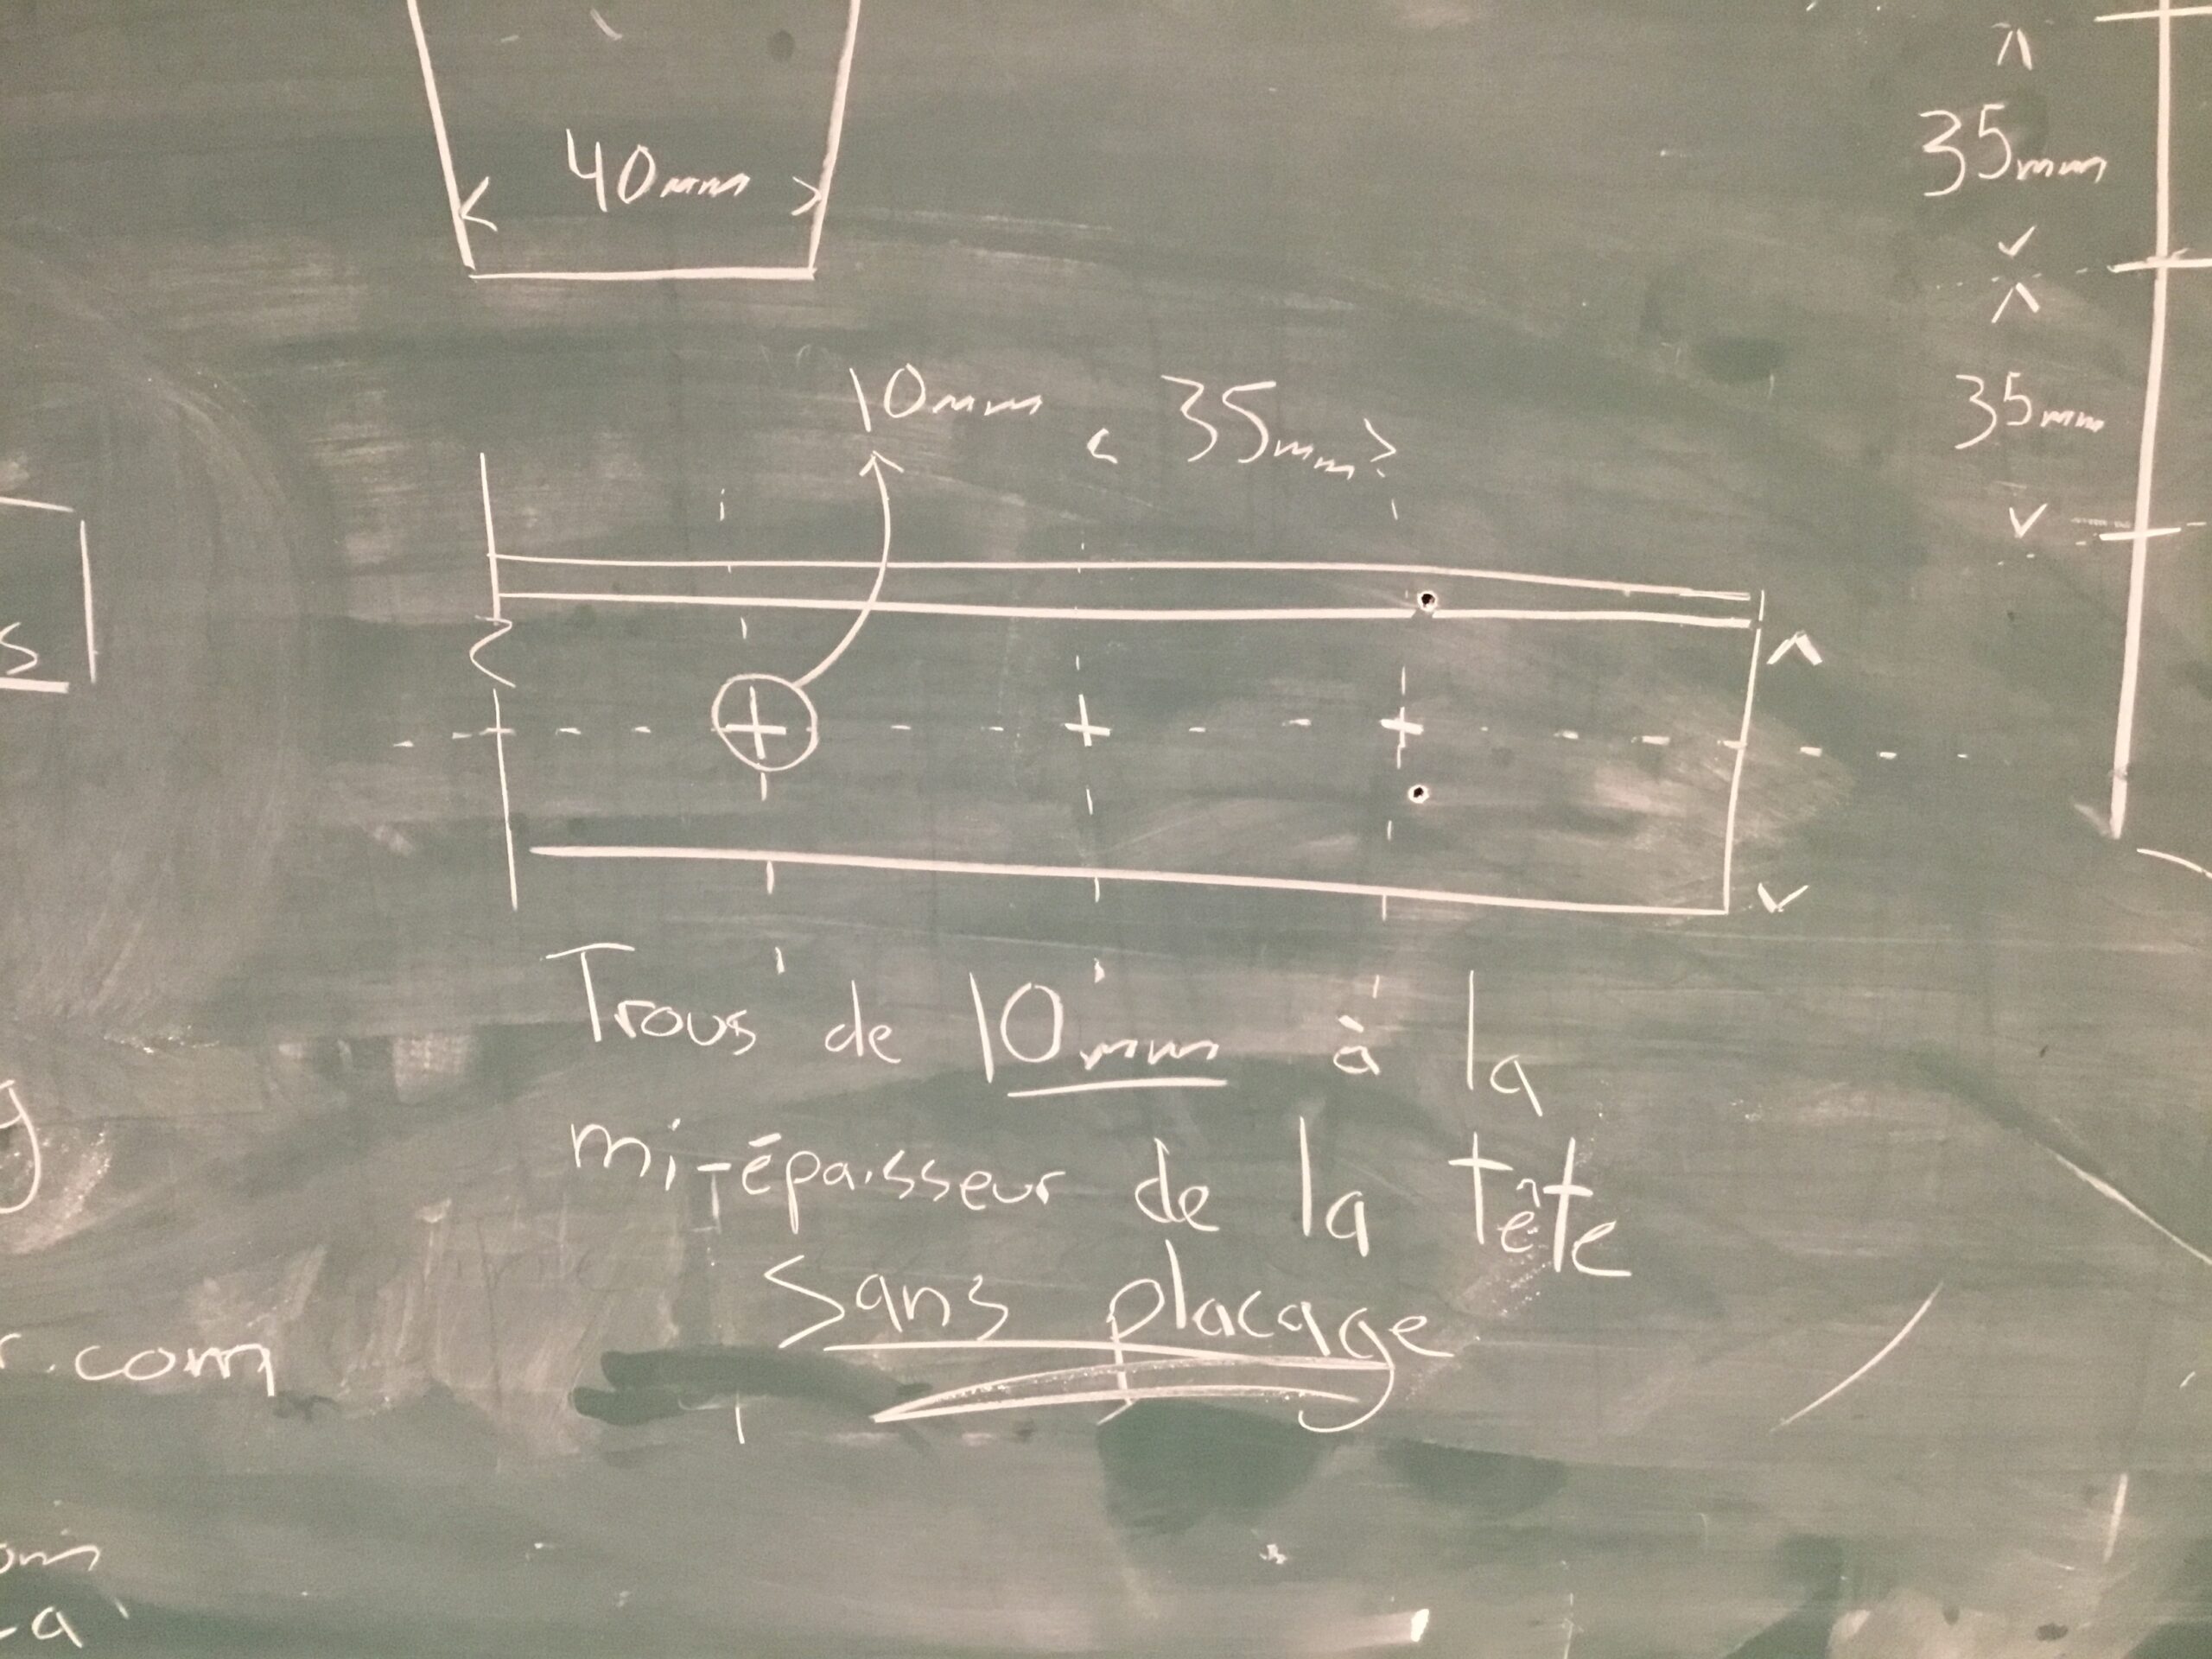 40mm
35mm
10mm < 35mm >
35mm
Trous de 10mm à la
mi-épaisseur de la tête
Sans placage
.com